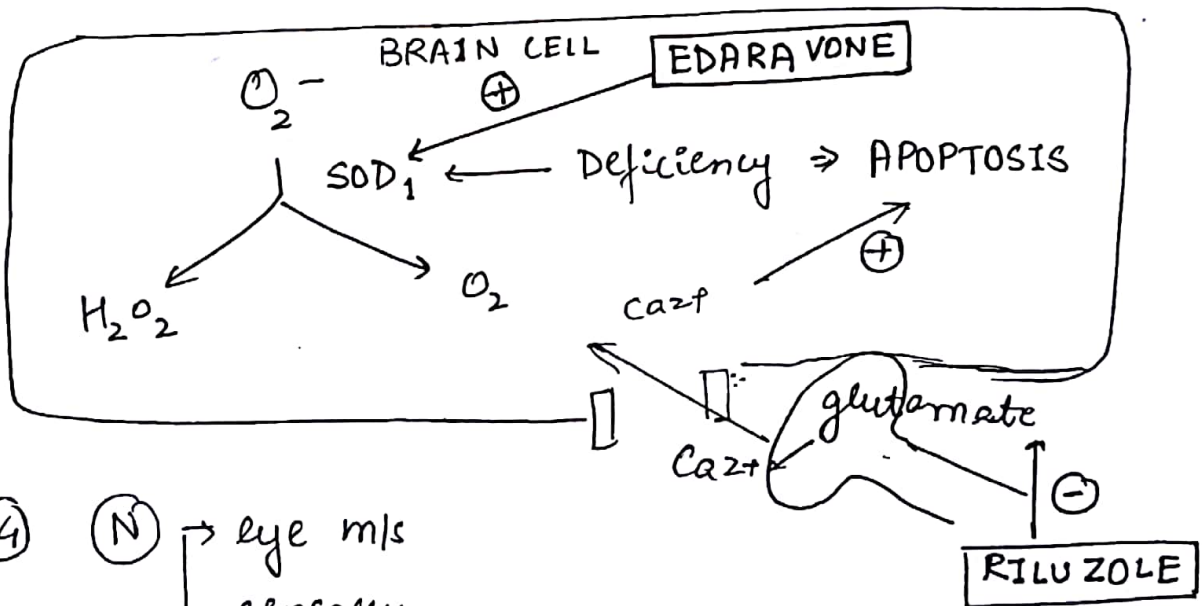 BRAIN CELL
EDARAVONE
O2-
+
SOD1 ← Deficiency ⇒ APOPTOSIS
+
H2O2
O2
Ca2+
glutamate
Ca2+
-
4) N → eye m/s
RILUZOLE